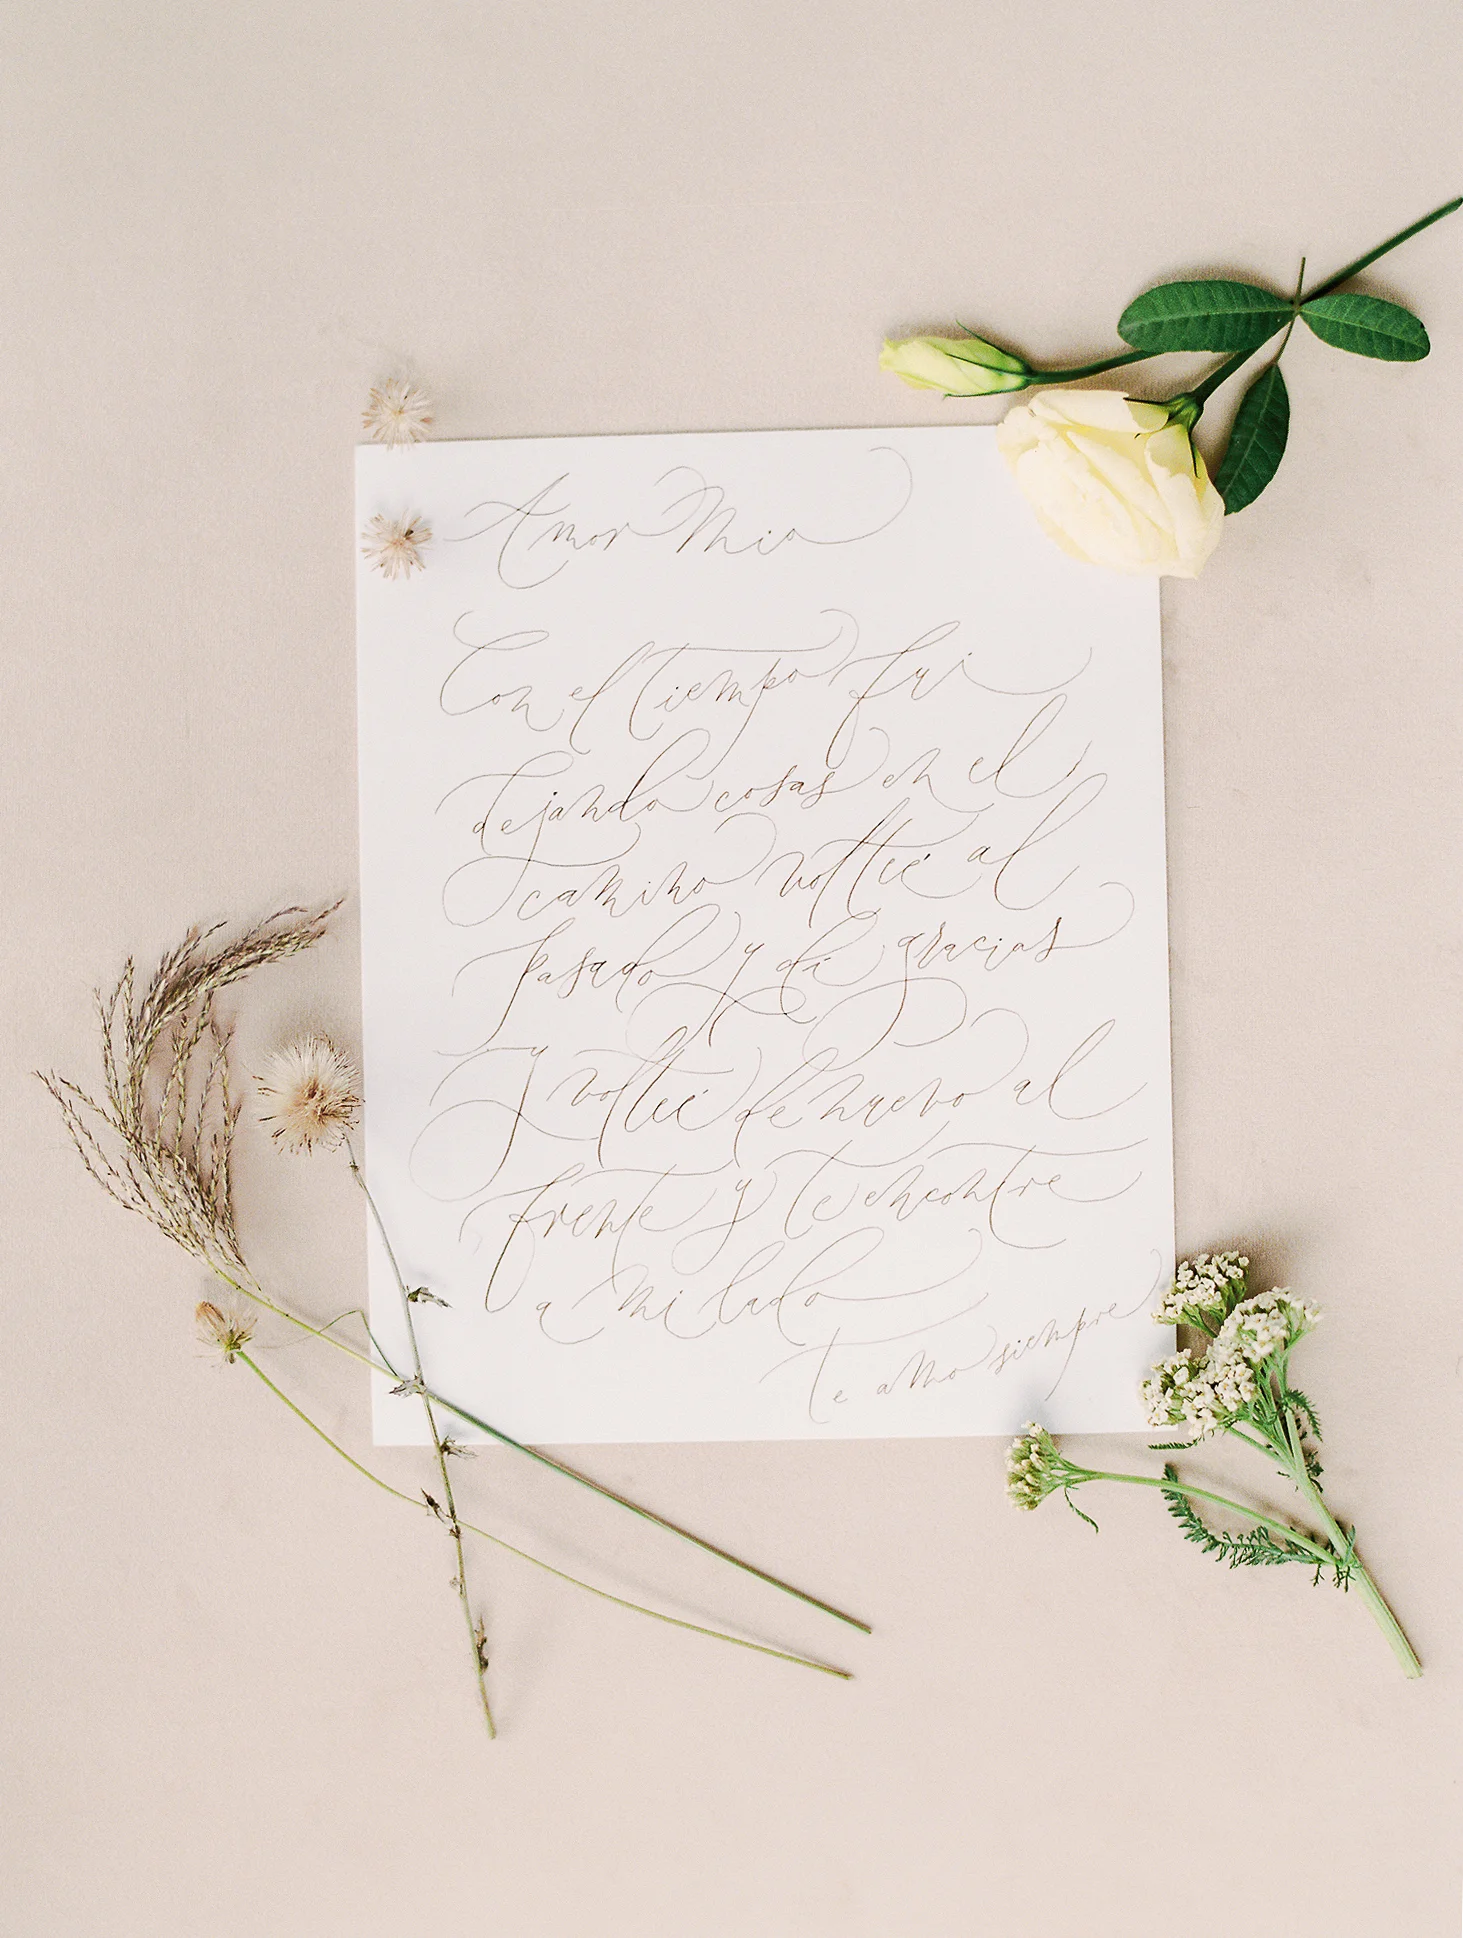 Amor Mio
Con el tiempo fui
dejando cosas en el
camino volteé al
pasado y di gracias
y volteé de nuevo al
frente y te encontre
a mi lado
Te amo siempre